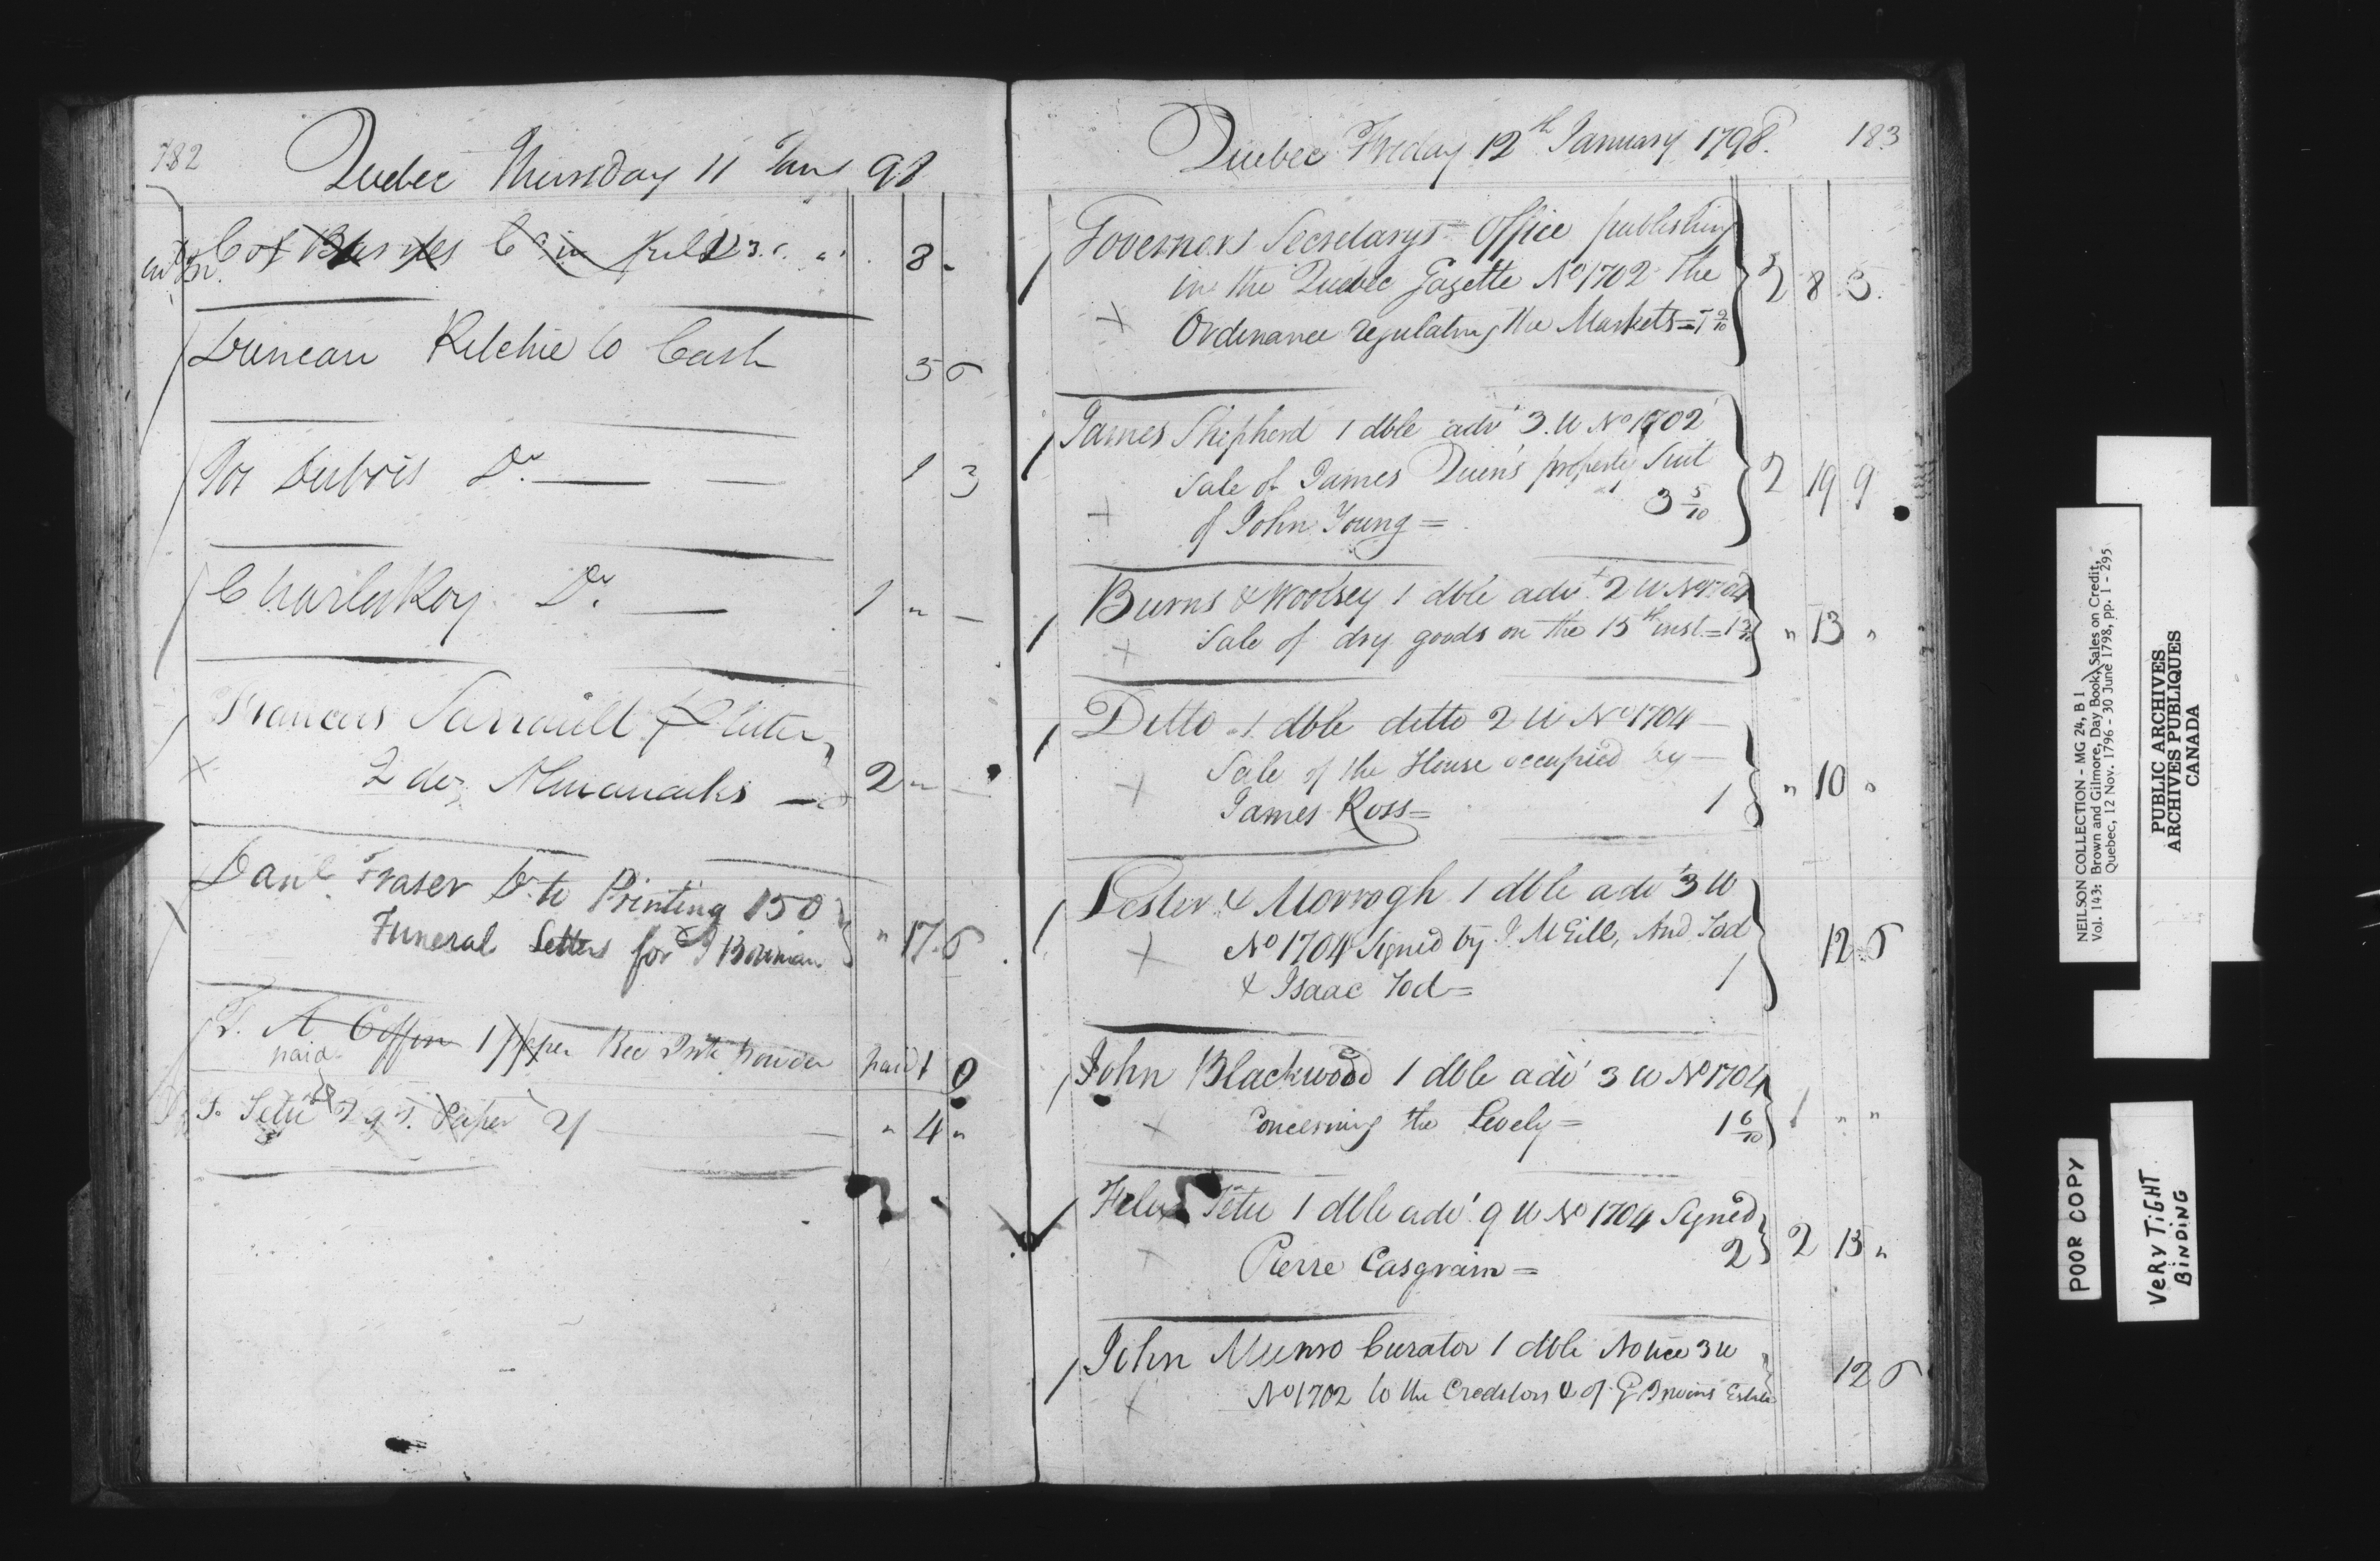 182
Quebec Thursday 11 Jany 98
Col Barnes 8 "
Duncan Ritchie to Cash 5 6
Jos Dubois Do. 1 3
Charles Roy Do. 1 " —
Francois Sarrault
2 doz Almanacks 2 " —
Danl. Fraser Dr. to Printing 150
Funeral Letters for J Bowman " 17 6
T. A Coffin 1 paper Ink powder paid 1 0
paid
F. Tetu paper 2/ " 4 "
Quebec Friday 12th January 1798. 183
Governors Secretarys Office publishing
in the Quebec Gazette No 1702 The
Ordinance regulating the Markets = 8 3
James Shepherd 1 dble advt 3 W No 1702
Sale of James Quin's property Suit
of John Young = 3 5/10 2 19 9
Burns & Woolsey 1 dble advt 2 W No 1704
Sale of dry goods on the 15th inst = " 13 "
Ditto 1 dble ditto 2 W No 1704
Sale of the House occupied by
James Ross = 1 " 10 "
Lester & Morrogh 1 dble advt 3 W
No 1704 Signed by J. McGill, And Tod
& Isaac Tod = 1 12 6
John Blackwood 1 dble advt 3 W No 1704
Concerning the Lively = 1 6/10 1 " "
Felix Tetu 1 dble advt 9 W No 1704 Signed
Pierre Casgrain = 2 2 15 "
John Munro Curator 1 dble Notice 3 W
No 1702 to the Creditors & of G Irwins Estate 12 6
NEILSON COLLECTION - MG 24, B 1
Vol. 143: Brown and Gilmore, Day Book, Sales on Credit,
Quebec, 12 Nov. 1796 - 30 June 1798, pp. 1 - 295
PUBLIC ARCHIVES
ARCHIVES PUBLIQUES
CANADA
POOR COPY
VERY TIGHT
BINDING